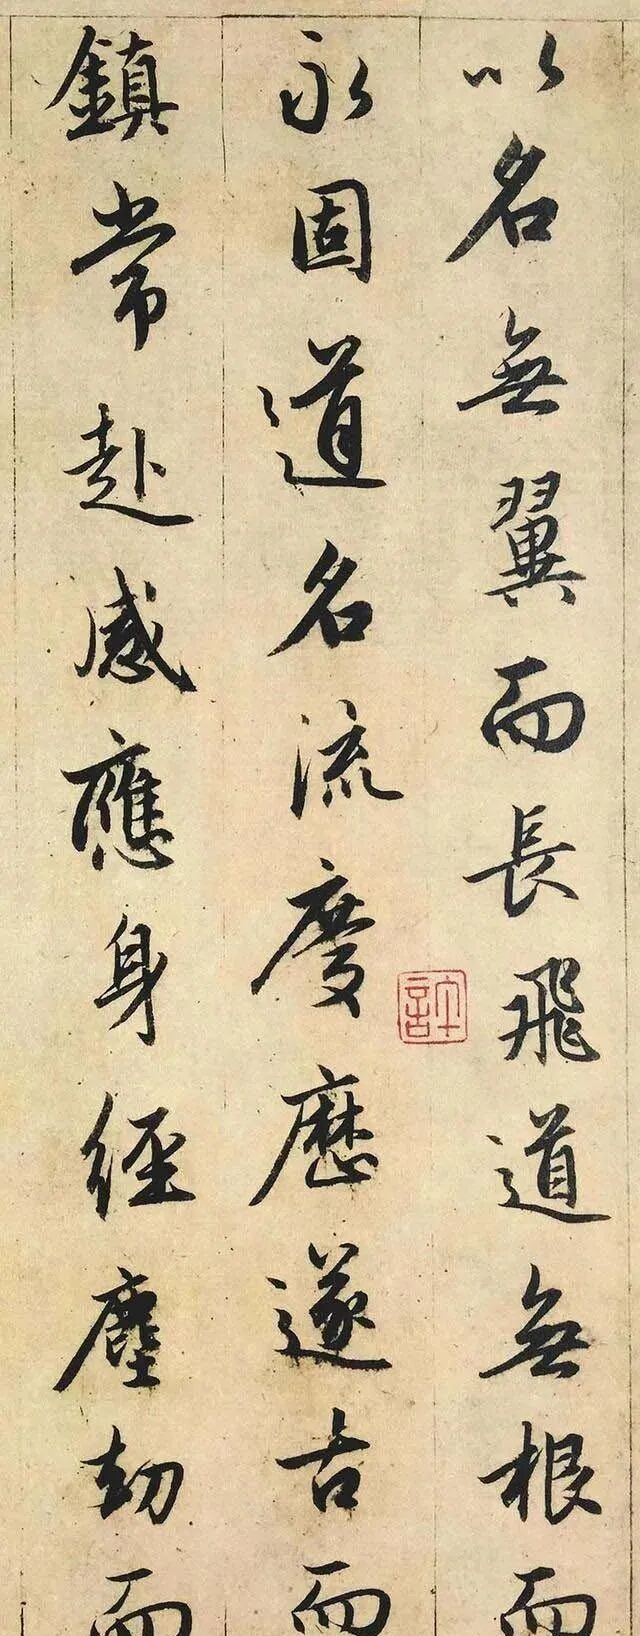 以名無翼而長飛道無根而
永固道名流慶歷遂古而
鎮常赴感應身經塵劫而